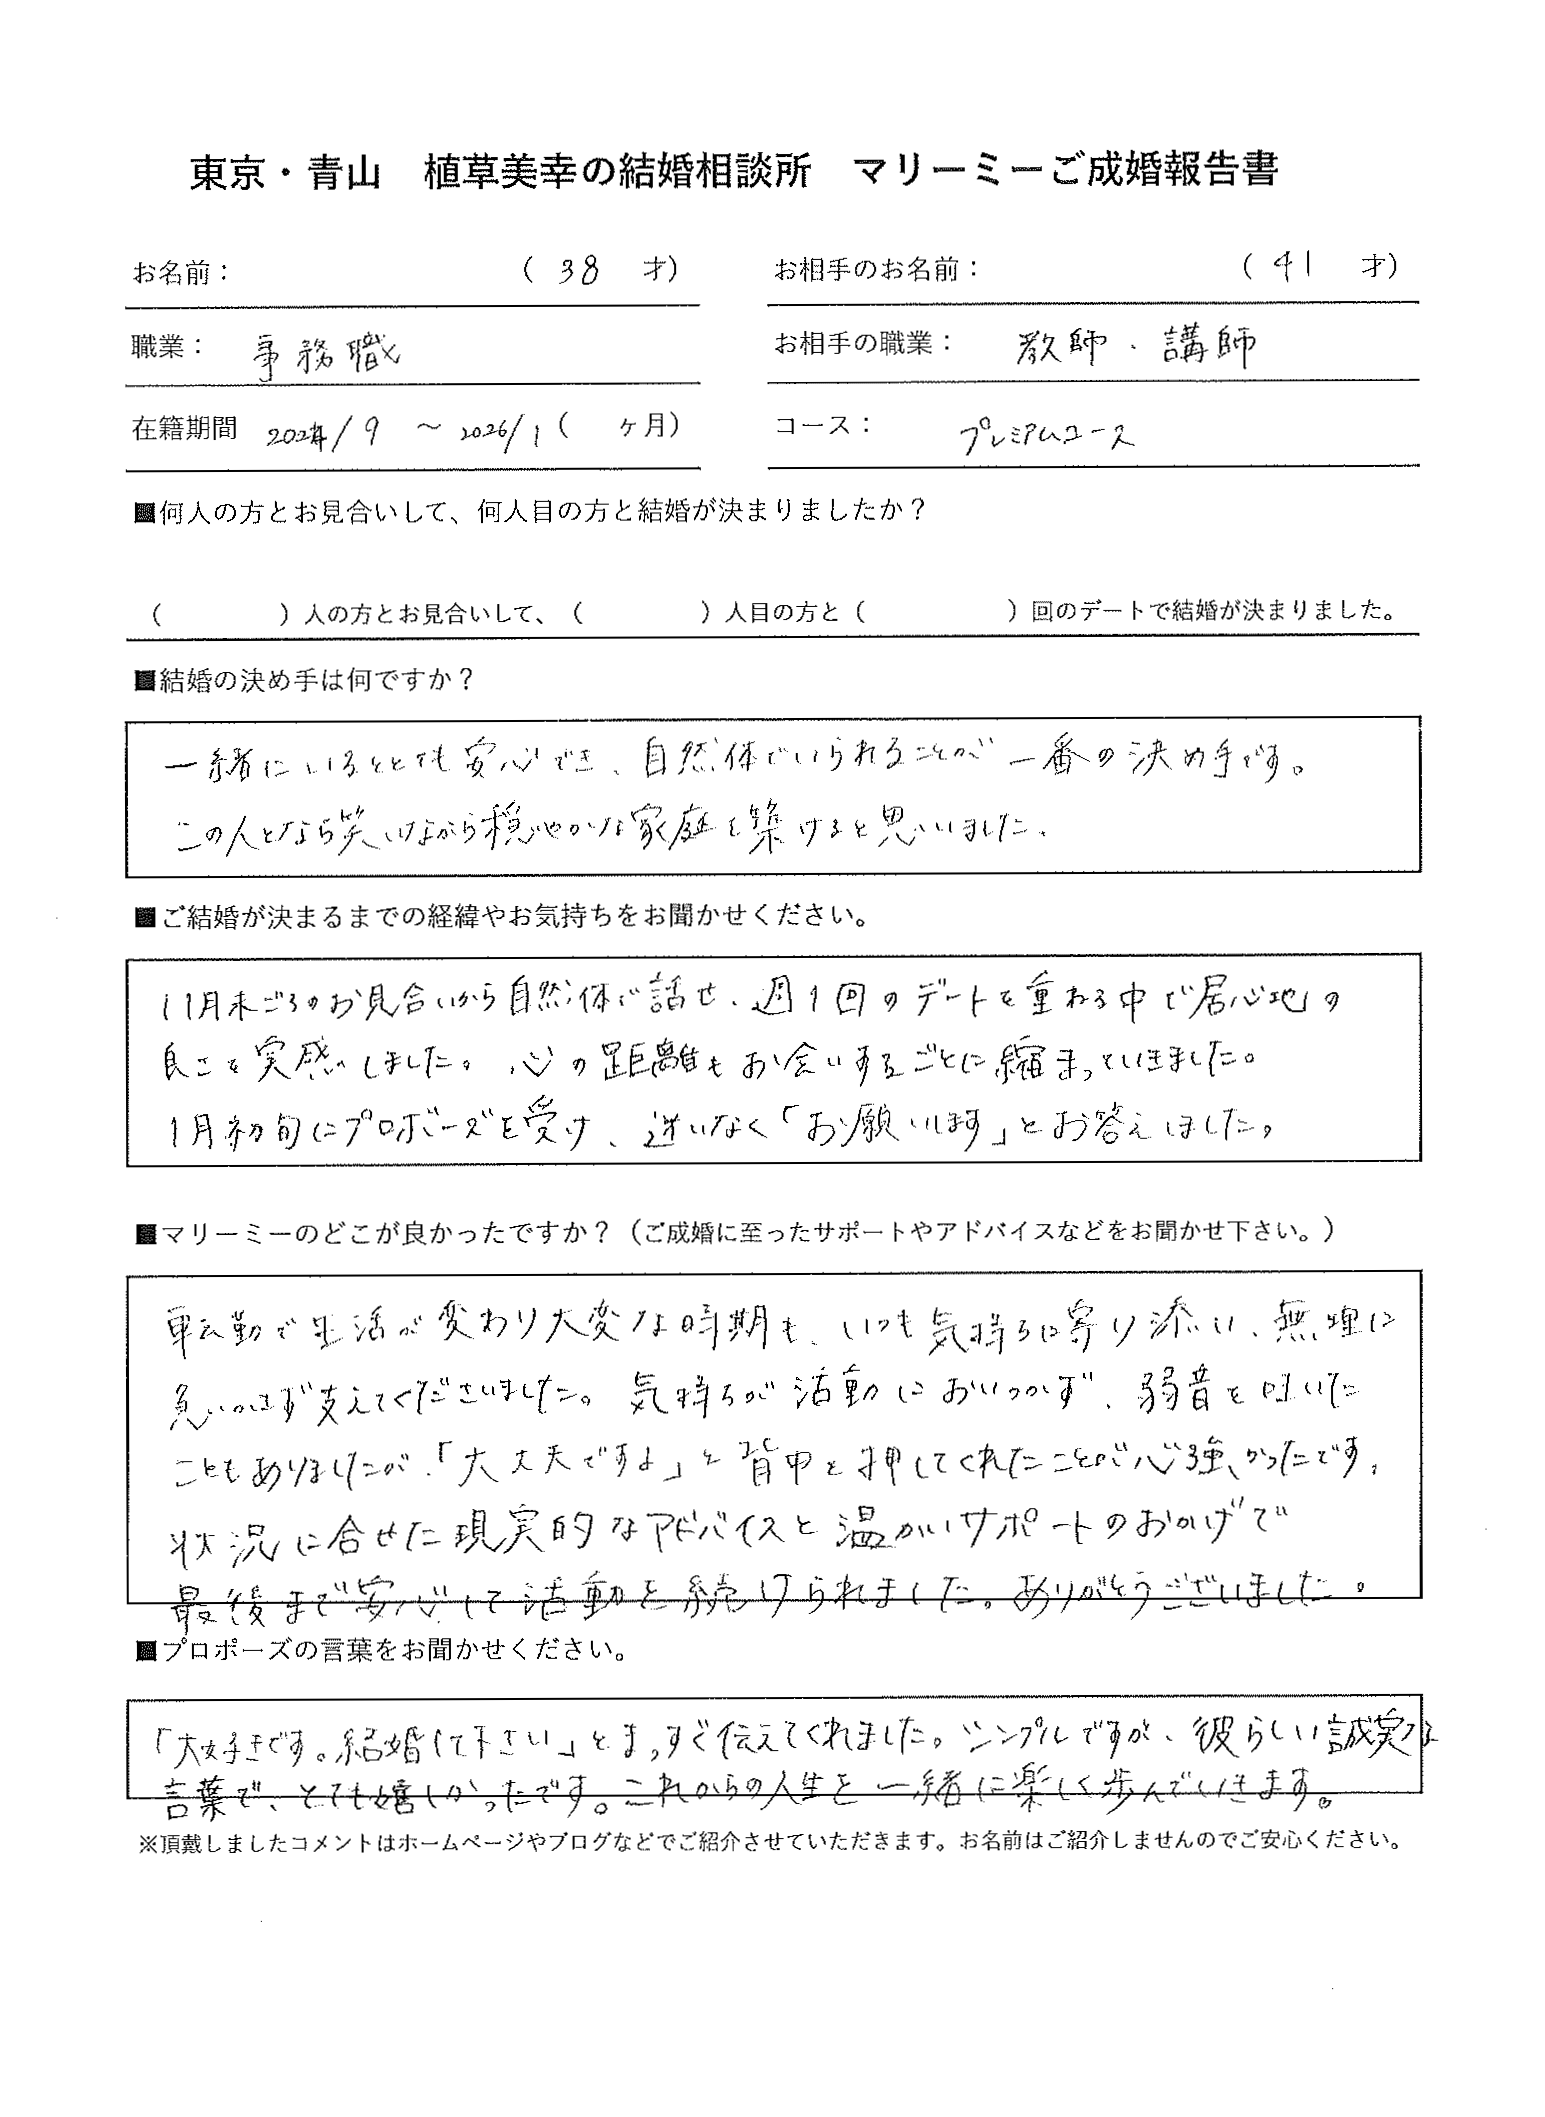 東京・青山 植草美幸の結婚相談所 マリーミーご成婚報告書
お名前： （ 38 才）
お相手のお名前： （ 41 才）
職業： 事務職
お相手の職業： 教師・講師
在籍期間 2024/9 ～ 2026/1 （ ヶ月）
コース： プレミアムコース
■何人の方とお見合いして、何人目の方と結婚が決まりましたか？
（ ）人の方とお見合いして、（ ）人目の方と（ ）回のデートで結婚が決まりました。
■結婚の決め手は何ですか？
一緒にいるととても安心でき、自然体でいられることが一番の決め手です。
この人となら笑いながら穏やかな家庭を築けると思いました。
■ご結婚が決まるまでの経緯やお気持ちをお聞かせください。
11月末ごろのお見合いから自然体で話せ、週1回のデートを重ねる中で居心地の
良さを実感しました。心の距離もお会いするごとに縮まっていきました。
1月初旬にプロポーズを受け、迷いなく「お願いします」とお答えしました。
■マリーミーのどこが良かったですか？（ご成婚に至ったサポートやアドバイスなどをお聞かせ下さい。）
転勤で生活が変わり大変な時期も、いつも気持ちに寄り添い、無理に
急かさず支えてくださいました。気持ちが活動においつかず、弱音を吐いた
こともありましたが、「大丈夫ですよ」と背中を押してくれたことが心強かったです。
状況に合せた現実的なアドバイスと温かいサポートのおかげで
最後まで安心して活動を続けられました。ありがとうございました。
■プロポーズの言葉をお聞かせください。
「大好きです。結婚して下さい」とまっすぐ伝えてくれました。シンプルですが、彼らしい誠実な
言葉で、とても嬉しかったです。これからの人生を一緒に楽しく歩んでいきます。
※頂戴しましたコメントはホームページやブログなどでご紹介させていただきます。お名前はご紹介しませんのでご安心ください。